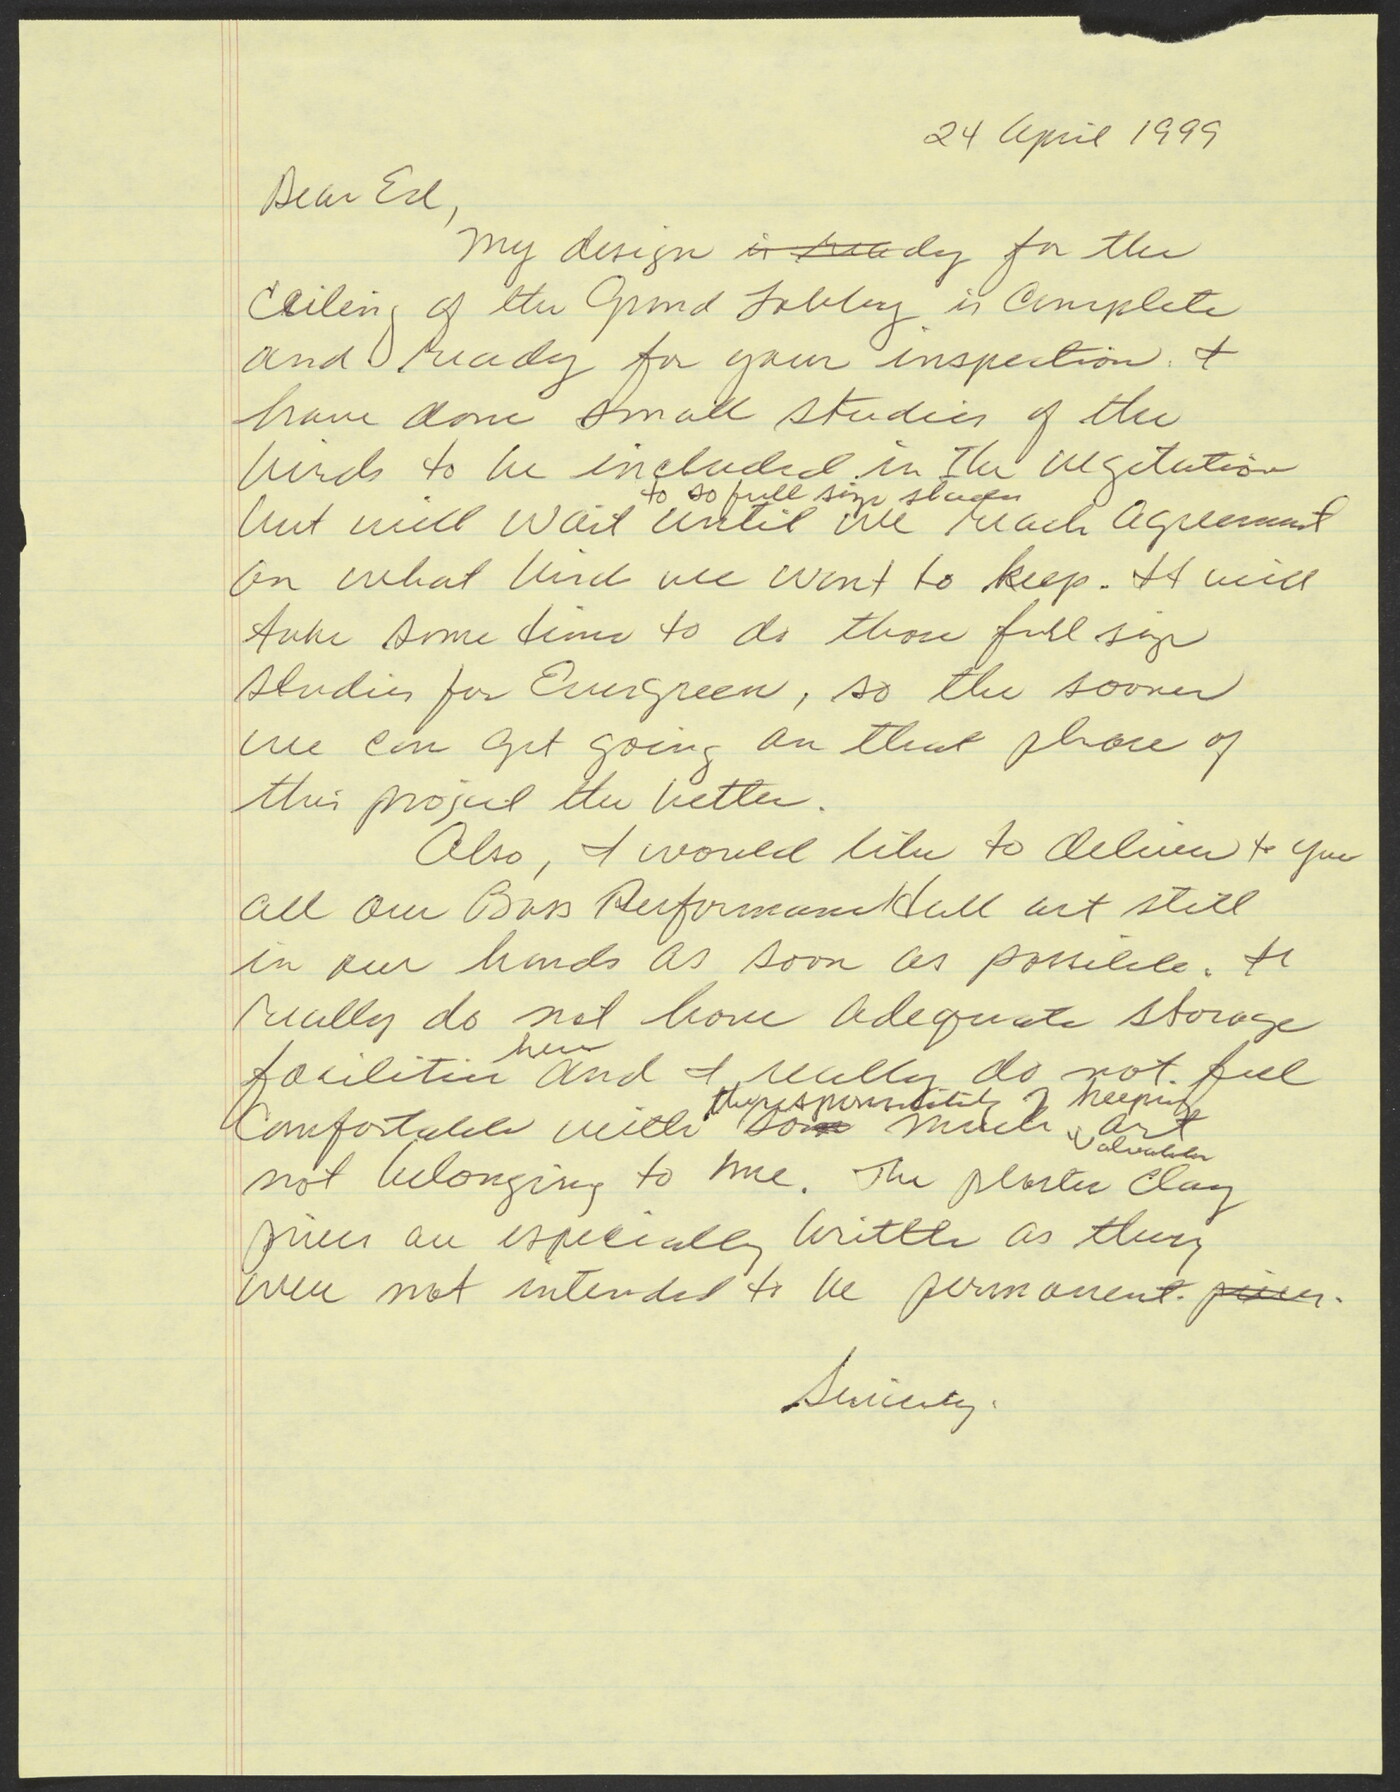 24 April 1999
Dear Ed,
My design is ready for the
ceiling of the Grand Lobby is complete
and ready for your inspection. I
have done small studies of the
birds to be included in the vegetation
to do full size studies
but will wait until we reach agreement
on what bird we want to keep. It will
take some time to do those full size
studies for Evergreen, so the sooner
we can get going on that phase of
this project the better.
Also, I would like to deliver to you
all our Bass Performance Hall art still
in our hands as soon as possible. I
really do not have adequate storage
here
facilities and I really do not feel
the responsibility of keeping
comfortable with so much art
valuable
not belonging to me. The plaster clay
pieces are especially brittle as they
were not intended to be permanent. pieces.
Sincerely.